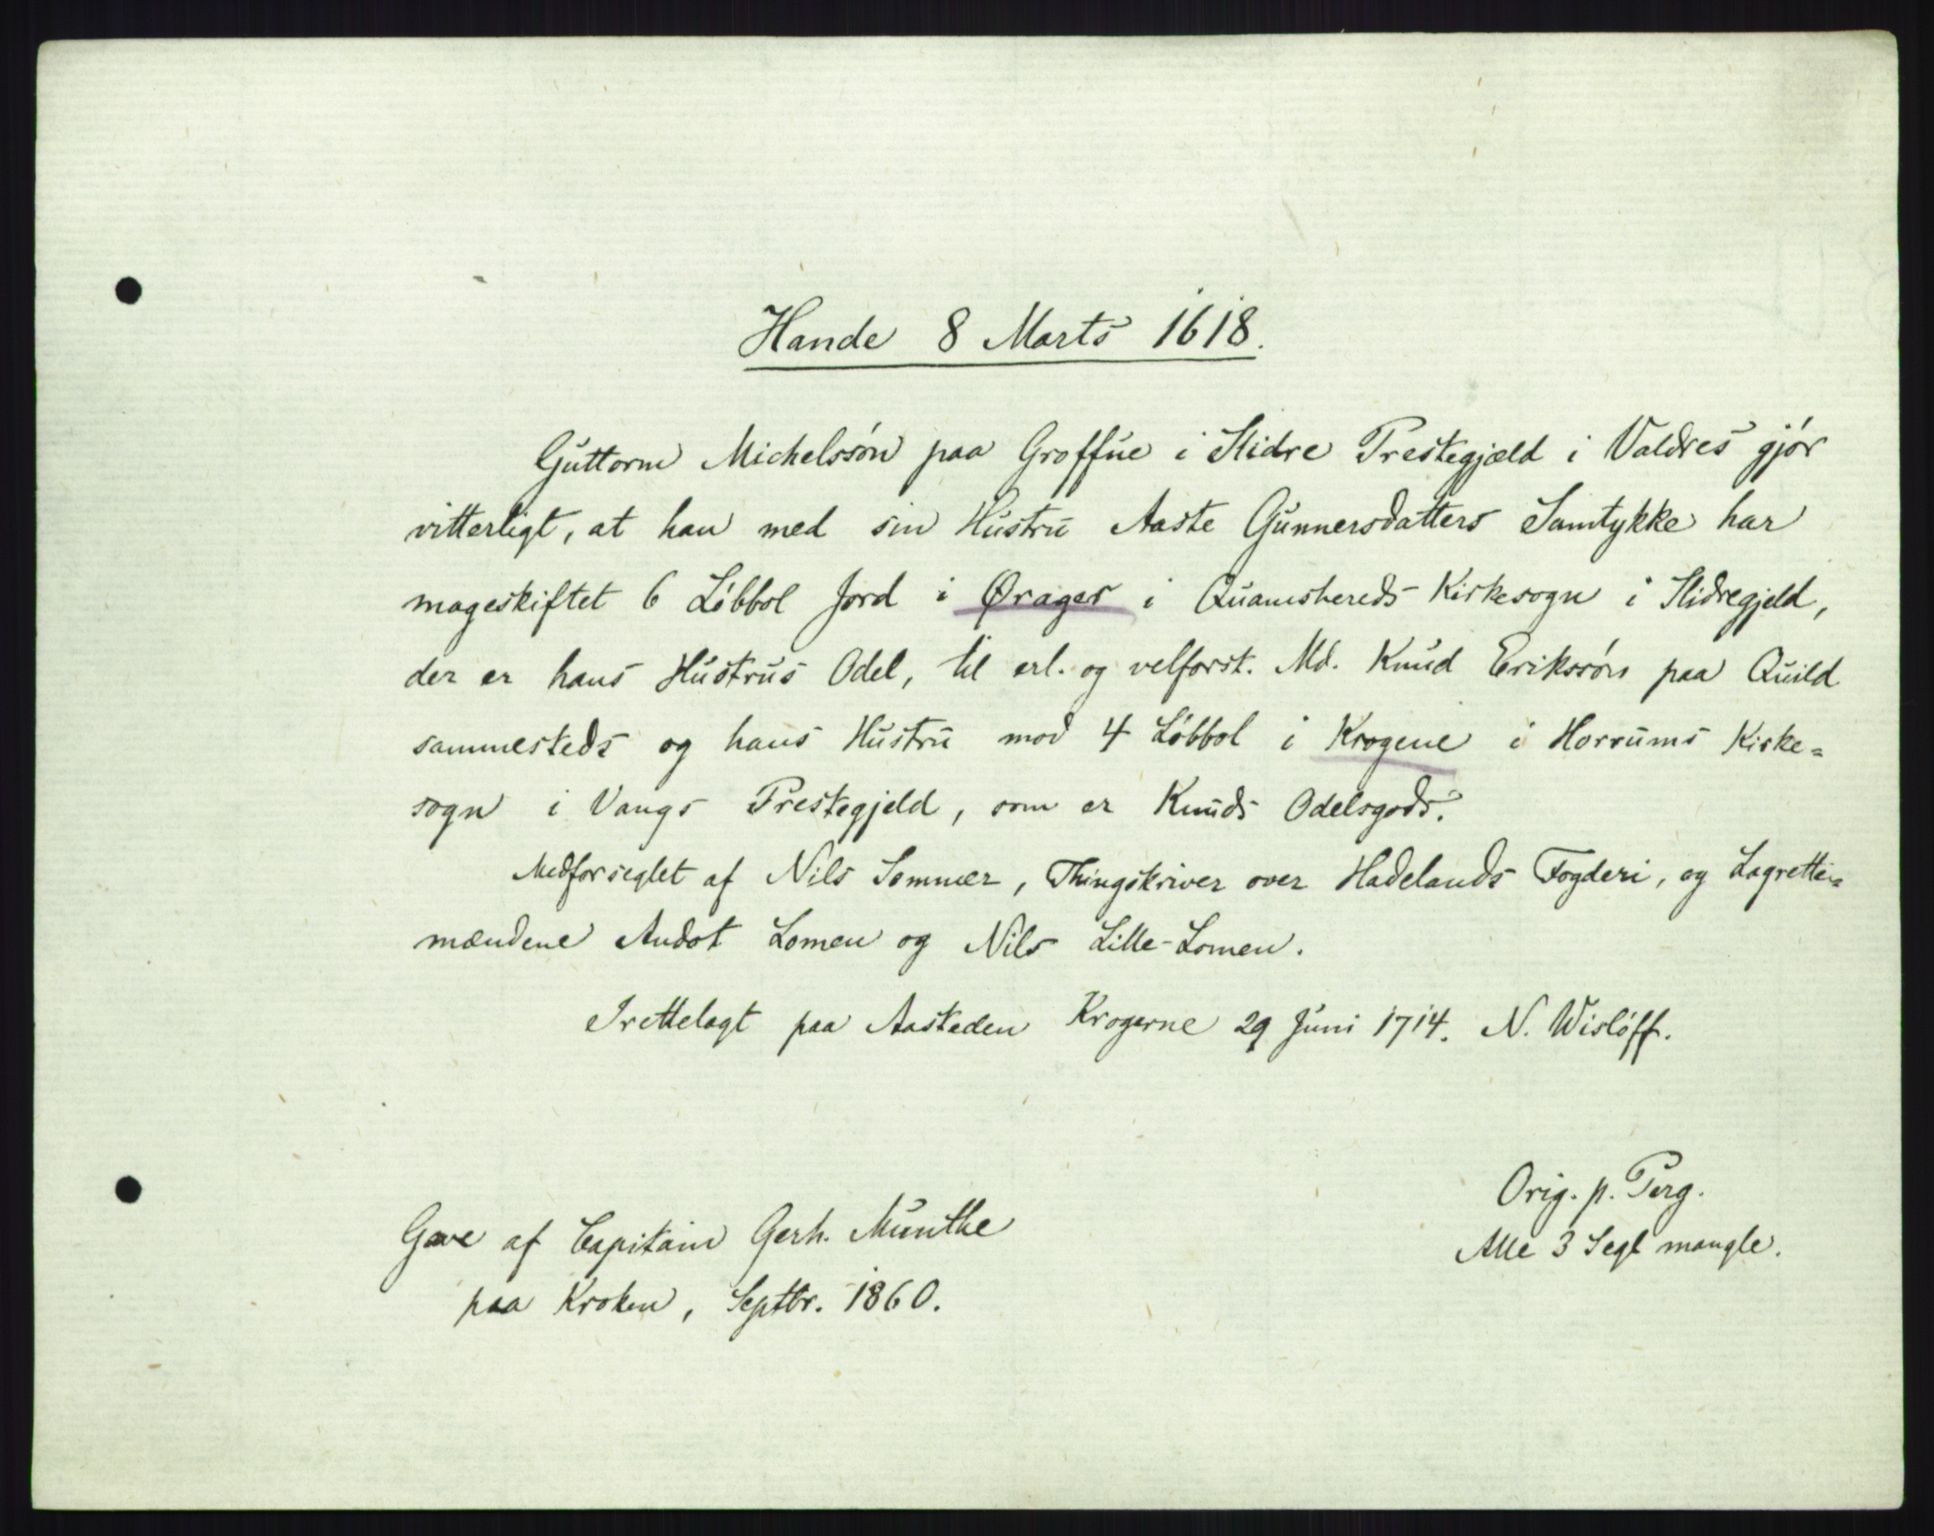 Hande 8 Marts 1618.
Guttorm Michelssøn paa Groffue i Slidre Prestegjæld i Valdres gjør
vitterligt, at han med sin Hustru Aaste Gunnersdatters Samtykke har
mageskiftet 6 Løbbol Jord i Ørager i Quamshereds Kirkesogn i Slidregjeld,
der er hans Hustrus Odel, til erl. og velforst. Md. Knud Erikssøn paa Quild
sammesteds og hans Hustru mod 4 Løbbol i Krogene i Horrums Kirke=
sogn i Vangs Prestegjeld, som er Knuds Odelsgods.
Medforseglet af Nils Sommer, Thingskriver over Hadelands Fogderi, og Lagrette=
mændene Andot Lomen og Nils Lille-Lomen.
Irettelagt paa Aasteden Krogerne 29 Juni 1714. N. Wisløff.
Orig. p. Perg.
Alle 3 Segl mangle.
Gave af Capitain Gerh. Munthe
paa Kroken, Septbr. 1860.